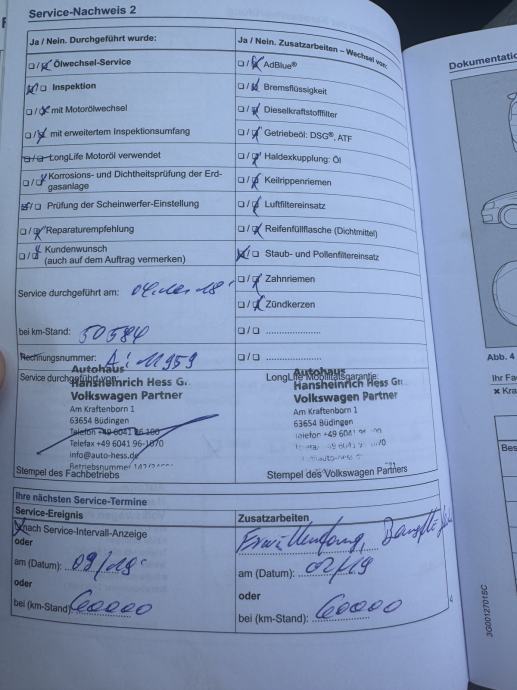 Service-Nachweis 2
Ja / Nein. Durchgeführt wurde:
Ölwechsel-Service
Inspektion
mit Motorölwechsel
mit erweitertem Inspektionsumfang
LongLife Motoröl verwendet
Korrosions- und Dichtheitsprüfung der Erd-
gasanlage
Prüfung der Scheinwerfer-Einstellung
Reparaturempfehlung
Kundenwunsch
(auch auf dem Auftrag vermerken)
Service durchgeführt am:
bei km-Stand: 50584
Rechnungsnummer: A: 11959
Service durchgeführt von:
Autohaus
Hansheinrich Hess G
Volkswagen Partner
Am Kraftenborn 1
63654 Büdingen
Telefon +49 6041 96
Telefax +49 6041 96-
info@auto-hess.de
Betriebsnummer
Stempel des Fachbetriebs
Ja / Nein. Zusatzarbeiten – Wechsel von:
AdBlue®
Bremsflüssigkeit
Dieselkraftstofffilter
Getriebeöl: DSG®, ATF
Haldexkupplung: Öl
Keilrippenriemen
Luftfiltereinsatz
Reifenfüllflasche (Dichtmittel)
Staub- und Pollenfiltereinsatz
Zahnriemen
Zündkerzen
LongLife Mobilitätsgarantie:
Autohaus
Hansheinrich Hess G
Volkswagen Partner
Am Kraftenborn 1
63654 Büdingen
Telefon +49 6041
Stempel des Volkswagen Partners
Ihre nächsten Service-Termine
Service-Ereignis
nach Service-Intervall-Anzeige
oder
am (Datum): 09/19
oder
bei (km-Stand) 60000
Zusatzarbeiten
am (Datum): 02/19
oder
bei (km-Stand): 60000
Dokumentatio
Abb. 4
Ihr Fa
× Kra
Bes
3G0012701SC